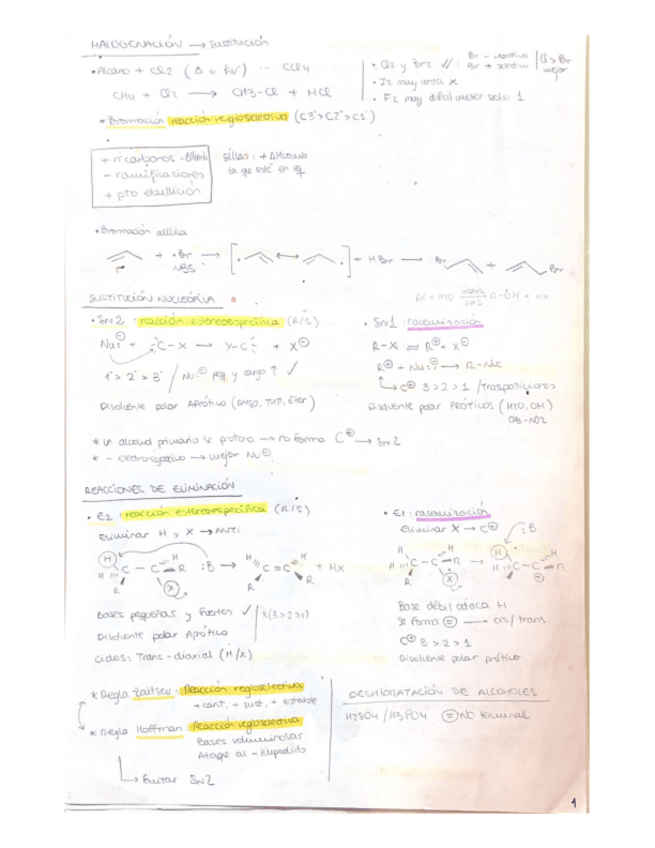 HALOGENACIÓN → Sustitución
• Alcano + Cl2 (Δ o hν) ... CCl4
CH4 + Cl2 → CH3-Cl + HCl
• Cl2 y Br2 //: Br - reactivo Br + selectivo | Cl > Br mejor
• I2 muy lenta x
• F2 muy difícil meter solo 1
• Bromación reacción regioselectiva (C3º>C2º>C1º)
+ nºcarbonos -ΔHcomb
- ramificaciones
+ pto ebullición
sillas: + ΔHcomb
la que esté en eq
• Bromación alílica
+ •Br → [ • ↔ • ] + HBr → Br + Br
NBS
SUSTITUCIÓN NUCLEÓFILA
• SN2: reacción estereoespecífica (R/S)
Nu:⊖ + C-X → Y-C + X⊖
1º > 2º > 3º / Nu:⊖ peq y cargo ↑ ✓
Disolvente polar Aprótico (DMSO, THF, éter)
• SN1: racemización
R-X ⇌ R⊕ + X⊖
R⊕ + Nu:⊖ → R-Nu
C⊕ 3>2>1 /Trasposiciones
Disolvente polar PRÓTICOS (H2O, OH)
CH3-NO2
* Un alcohol primario se protona → no forma C⊕ → SN2
* - electronegativo → mejor Nu⊖
REACCIONES DE ELIMINACIÓN
• E2: reacción estereoespecífica (R/S)
Eliminar H y X → ANTI
H H C - C H R R X :B → H R C = C H R + HX
Bases pequeñas y fuertes ✓ | X(3>2>1)
Disolvente polar Aprótico
Ciclos: Trans-diaxial (H/X)
• E1: racemización
Eliminar X → C⊕
H H C - C H R R X → H H C - C H R R ⊕ :B
Base débil ataca H
Se forma = → cis/trans
C⊕ 3>2>1
Disolvente polar prótico
* Regla Zaitsev: Reacción regioselectiva
+ cant, + sust, + estable
* Regla Hoffman Reacción regioselectiva
Bases voluminosas
Ataque al - impedido
→ Evitar SN2
DESHIDRATACIÓN DE ALCOHOLES
H2SO4/H3PO4 = No terminal
1